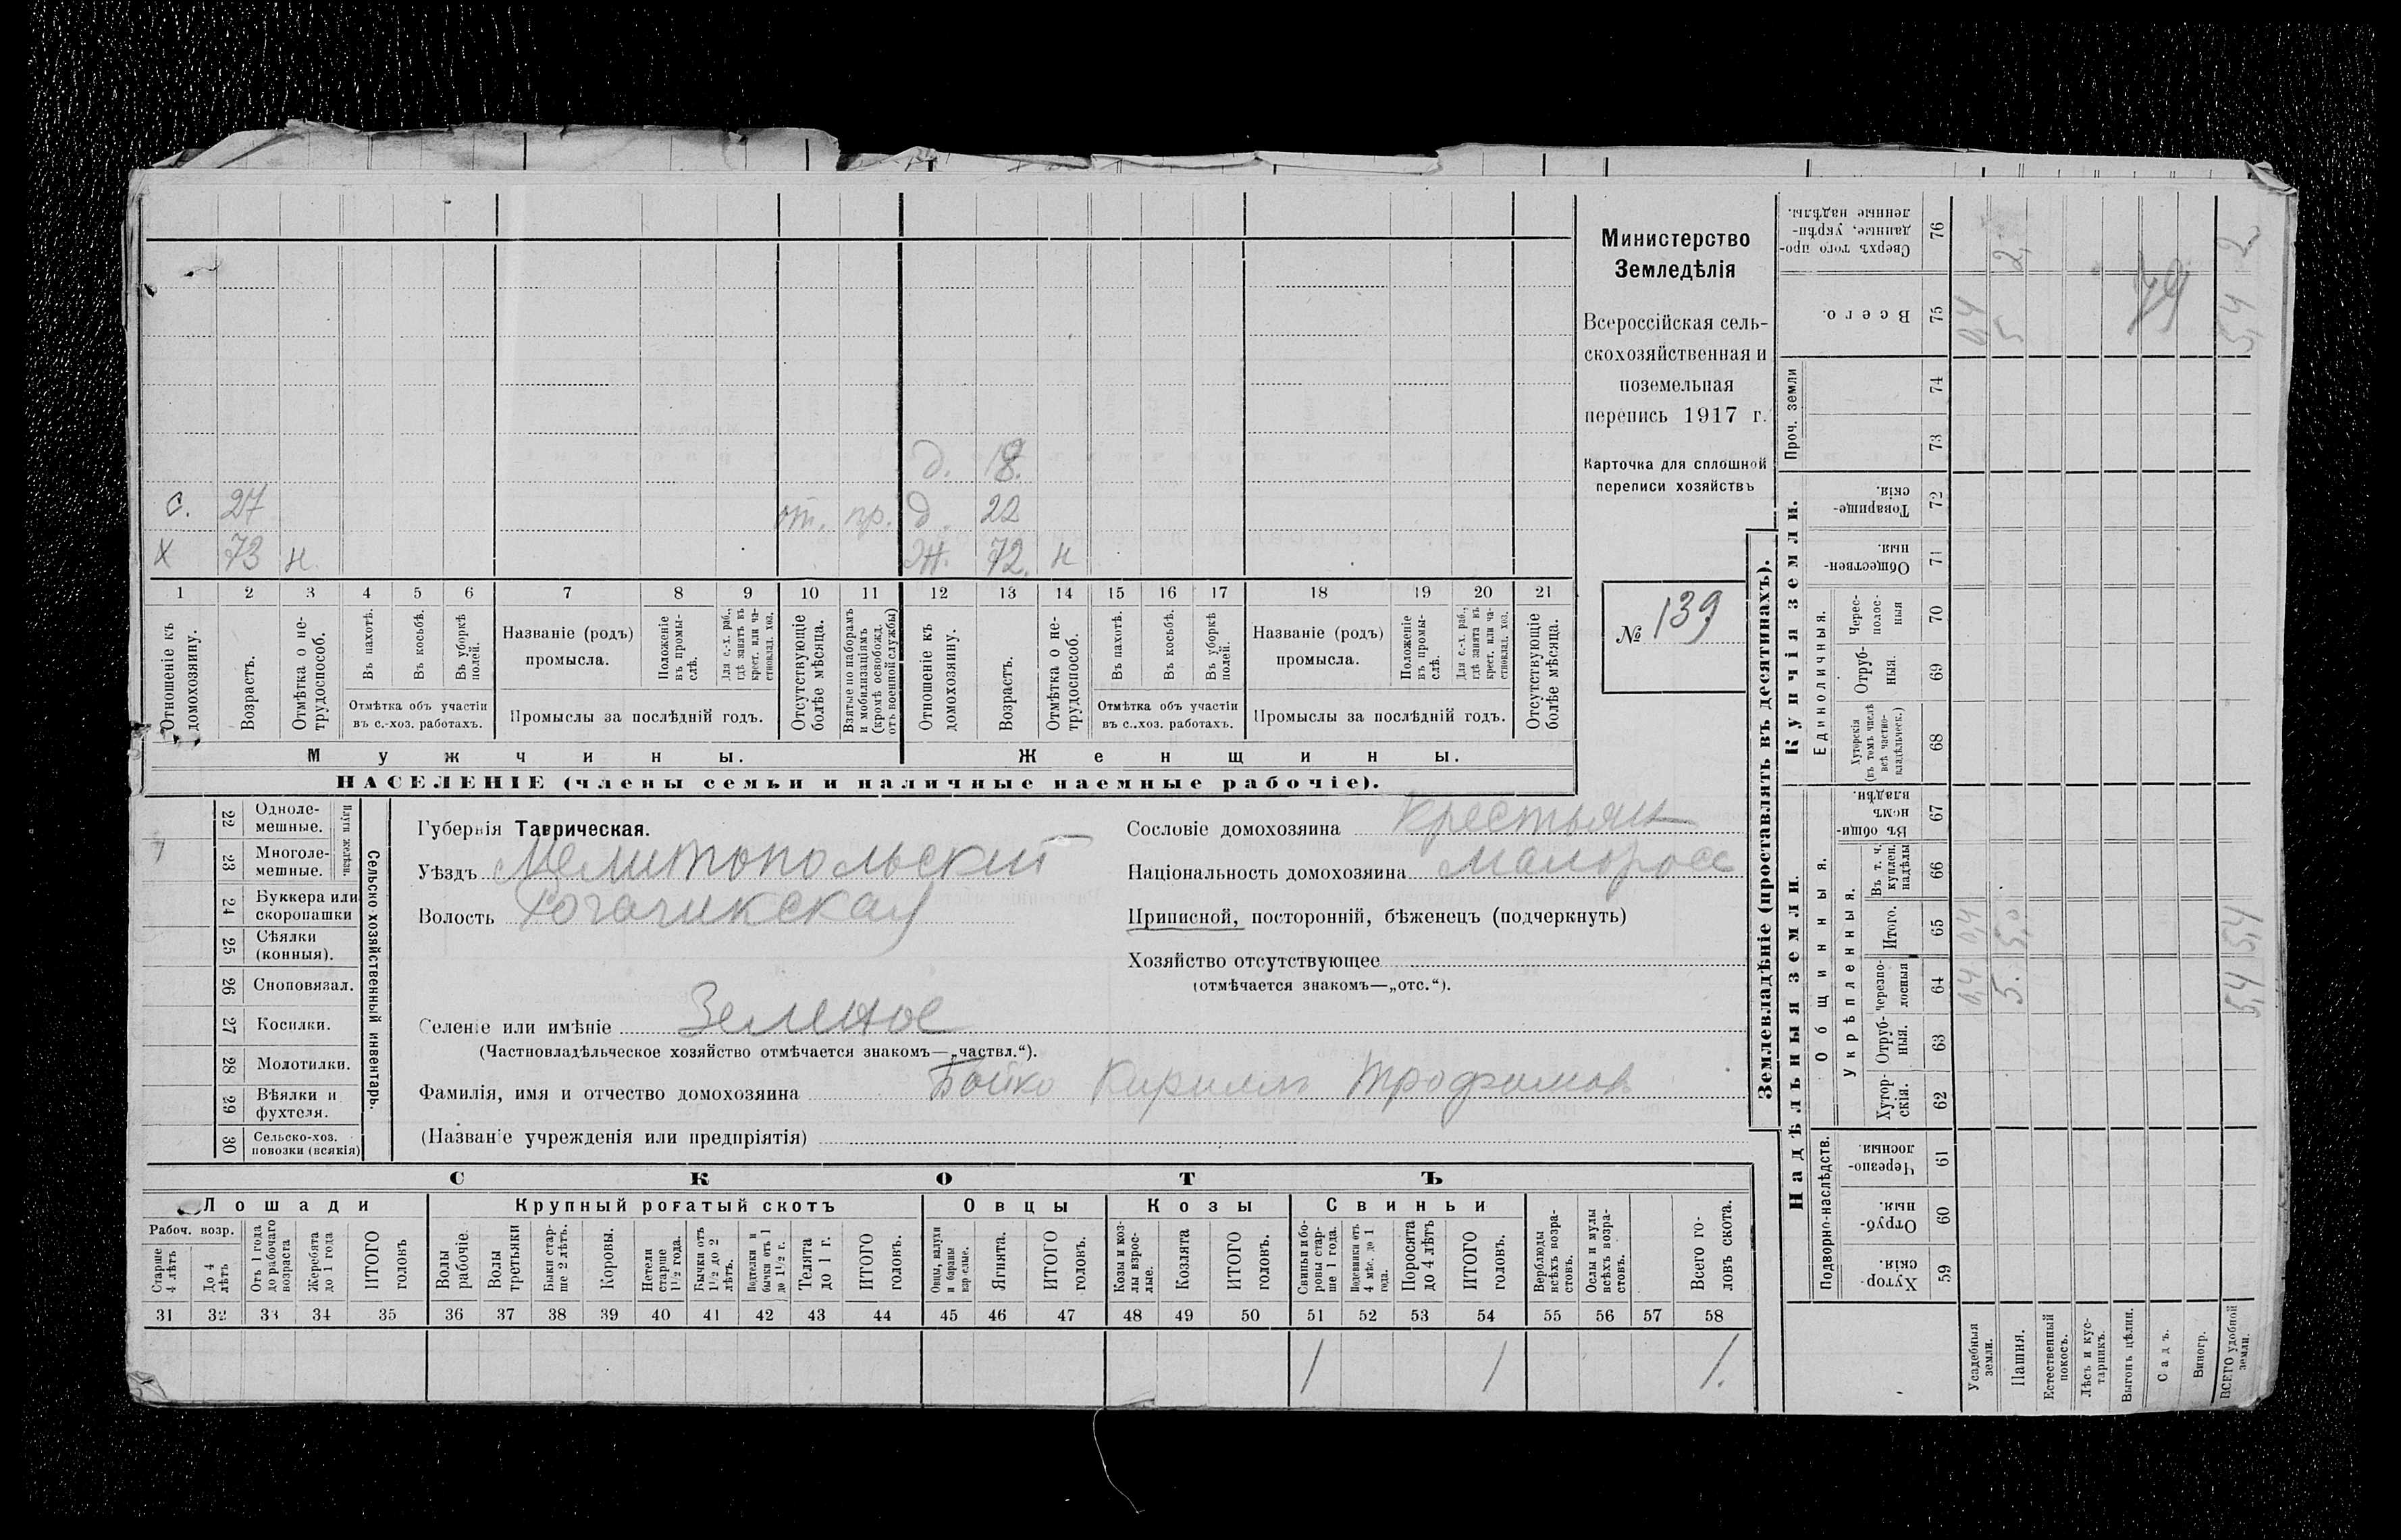 Министерство
Земледѣлія
Всероссійская сель-
скохозяйственная и
поземельная
перепись 1917 г.
Карточка для сплошной
переписи хозяйствъ
№ 139
д. 18.
с. 27 от. пр. д. 22
х 73 н. Ж. 72. н
1 2 3 4 5 6 7 8 9 10 11 12 13 14 15 16 17 18 19 20 21
Отношеніе къ домохозяину.
Возрастъ.
Отмѣтка о не-трудоспособ.
Въ пахотѣ.
Въ косьбѣ.
Въ уборкѣ полей.
Отмѣтка объ участіи
въ с.-хоз. работахъ.
Названіе (родъ)
промысла.
Положеніе въ промы-слѣ.
Для с.-х. раб., гдѣ занятъ въ крест. или ча-стновлад. хоз.
Промыслы за послѣдній годъ.
Отсутствующіе болѣе мѣсяца.
Взятые по наборамъ и мобилизаціямъ (кромѣ освобожд. отъ военной службы)
Отношеніе къ домохозяину.
Возрастъ.
Отмѣтка о не-трудоспособ.
Въ пахотѣ.
Въ косьбѣ.
Въ уборкѣ полей.
Отмѣтка объ участіи
въ с.-хоз. работахъ.
Названіе (родъ)
промысла.
Положеніе въ промы-слѣ.
Для с.-х. раб., гдѣ занята въ крест. или ча-стновлад. хоз.
Промыслы за послѣдній годъ.
Отсутствующіе болѣе мѣсяца.
Мужчины. Женщины.
НАСЕЛЕНІЕ (члены семьи и наличные наемные рабочіе).
22 Одноле-мешные.
23 Многоле-мешные.
Плуги желѣзн.
24 Буккера или скоропашки
25 Сѣялки (конныя).
26 Сноповязал.
27 Косилки.
28 Молотилки.
29 Вѣялки и фухтеля.
30 Сельско-хоз. повозки (всякія)
Сельско-хозяйственный инвентарь.
Губернія Таврическая.
Уѣздъ Мелитопольскій
Волость Рогачикская
Селеніе или имѣніе Зеленое
(Частновладѣльческое хозяйство отмѣчается знакомъ—„частвл.“).
Фамилія, имя и отчество домохозяина Бойко Кирилл Трофимов
(Названіе учрежденія или предпріятія)
Сословіе домохозяина Крестьян
Національность домохозяина малоросс
Приписной, посторонній, бѣженецъ (подчеркнуть)
Хозяйство отсутствующее
(отмѣчается знакомъ—„отс.“).
СКОТЪ
Лошади Крупный рогатый скотъ Овцы Козы Свиньи
Рабоч. возр.
Старше 4 лѣтъ
До 4 лѣтъ
Отъ 1 года до рабочаго возраста
Жеребята до 1 года
ИТОГО головъ
Волы рабочіе.
Волы третьяки
Быки стар-ше 2 лѣтъ.
Коровы.
Нетели старше 1½ года.
Бычки отъ 1½ до 2 лѣтъ.
Подтелки и бычки отъ 1 до 1½ г.
Телята до 1 г.
ИТОГО головъ.
Овцы, валухи и бараны взрослые.
Ягнята.
ИТОГО головъ.
Козы и коз-лы взрос-лые.
Козлята
ИТОГО головъ.
Свиньи и бо-ровы стар-ше 1 года.
Подсвинки отъ 4 мѣс. до 1 года.
Поросята до 4 лѣтъ
ИТОГО головъ.
Верблюды всѣхъ возра-стовъ.
Ослы и мулы всѣхъ возра-стовъ.
Всего го-ловъ скота.
31 32 33 34 35 36 37 38 39 40 41 42 43 44 45 46 47 48 49 50 51 52 53 54 55 56 57 58
1 1 1.
Землевладѣніе (проставлять въ десятинахъ).
Надѣльныя земли.
Купчія земли.
Проч. земли
Подворно-наслѣдств.
Общинныя.
Укрѣпленныя.
Единоличныя.
Сверхъ того про-данные, укрѣп-ленные надѣлы. 76
Всего. 75
74
73
Товарище-скія. 72
Обществен-ныя. 71
Черес-полос-ныя 70
Отруб-ныя. 69
Хуторскія (въ томъ числѣ всѣ частно-владѣльческ.) 68
Въ общи-номъ владѣн. 67
Въ т. ч. куплен. надѣлы 66
Итого. 65
Черезпо-лосныя 64
Отруб-ныя. 63
Хутор-скія. 62
Черезпо-лосныя 61
Отруб-ныя. 60
Хутор-скія 59
Усадебныя земли. 0,4 0,4 0,4
Пашня. 5. 5,0 5 2,
Естественный покосъ.
Лѣсъ и кус-тарникъ.
Выгонъ цѣлин.
Садъ.
Виногр.
ВСЕГО удобной земли. 5,4 5,4 5,4 2